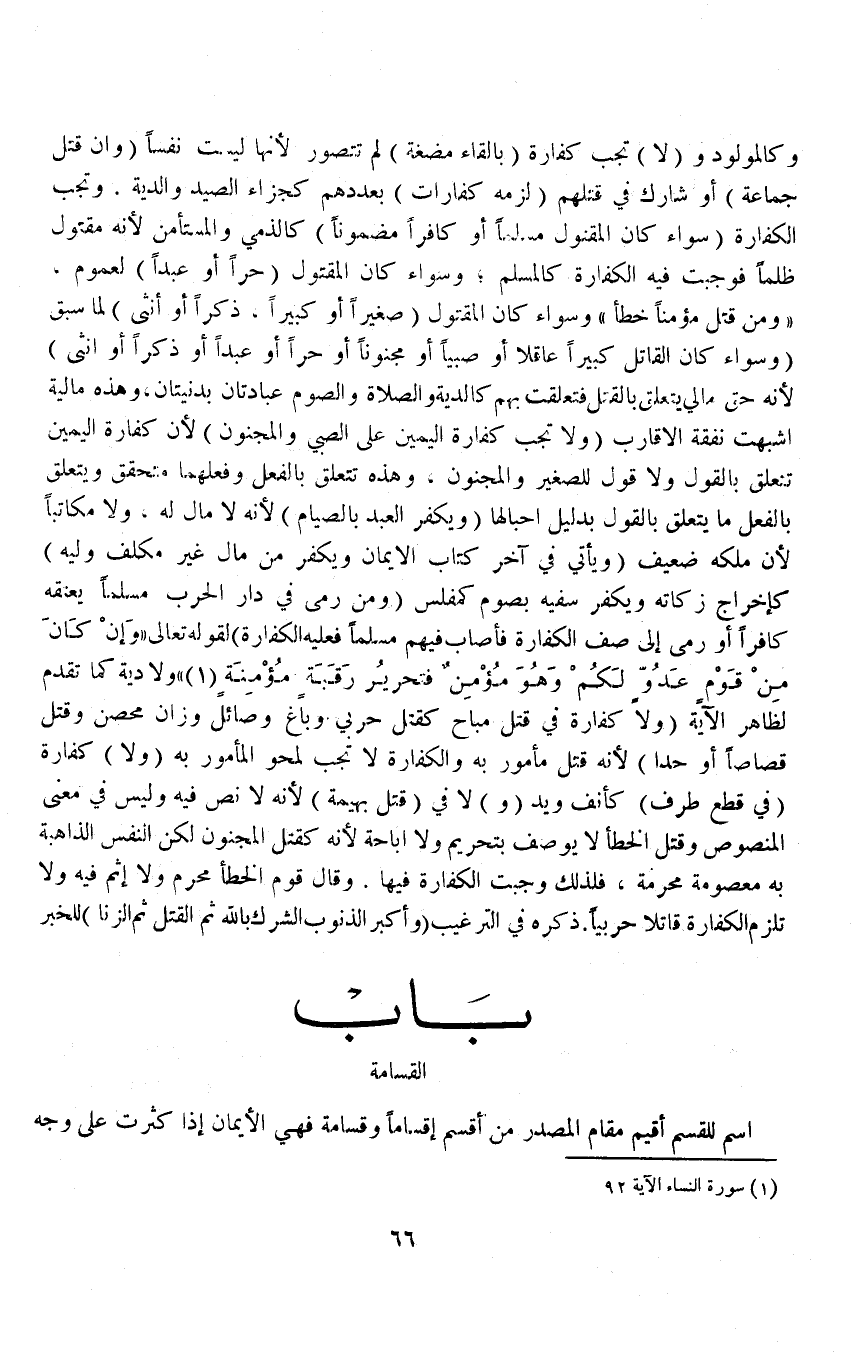 وكالمولود و (لا) تجب كفارة (بالقاء مضغة) لم تتصور لأنها ليست نفساً (وان قتل
جماعة) أو شارك في قتلهم (لزمه كفارات) بعددهم كجزاء الصيد والدية . وتجب
الكفارة (سواء كان المقتول مسلماً أو كافراً مضموناً) كالذمي والمستأمن لأنه مقتول
ظلماً فوجبت فيه الكفارة كالمسلم ؛ وسواء كان المقتول (حراً أو عبداً) لعموم .
« ومن قتل مؤمناً خطأ » وسواء كان المقتول (صغيراً أو كبيراً ، ذكراً أو أنثى) لما سبق
(وسواء كان القاتل كبيراً عاقلا أو صبياً أو مجنوناً أو حراً أو عبداً أو ذكراً أو انثى)
لأنه حق مالي يتعلق بالقتل فتعلقت بهم كالدية والصلاة والصوم عبادتان بدنيتان، وهذه مالية
اشبهت نفقة الاقارب (ولا تجب كفارة اليمين على الصبي والمجنون) لأن كفارة اليمين
تتعلق بالقول ولا قول للصغير والمجنون ، وهذه تتعلق بالفعل وفعلهما متحقق ويتعلق
بالفعل ما يتعلق بالقول بدليل احبالها (ويكفر العبد بالصيام) لأنه لا مال له ، ولا مكاتباً
لأن ملكه ضعيف (ويأتي في آخر كتاب الايمان ويكفر من مال غير مكلف وليه)
كإخراج زكاته ويكفر سفيه بصوم كمفلس (ومن رمى في دار الحرب مسلماً يعتقه
كافراً أو رمى إلى صف الكفارة فأصاب فيهم مسلماً فعليه الكفارة) لقوله تعالى «وَإنْ كَانَ
مِنْ قَوْمٍ عَدُوٍّ لَكُمْ وَهُوَ مُؤْمِنٌ فتحريرُ رَقَبَةٍ مُؤْمِنَةٍ (١)» ولا دية كما تقدم
لظاهر الآية (ولا كفارة في قتل مباح كقتل حربي وباغ وصائل وزان محصن وقتل
قصاصاً أو حدا) لأنه قتل مأمور به والكفارة لا تجب لمحو المأمور به (ولا) كفارة
(في قطع طرف) كأنف ويد (و) لا في (قتل بهيمة) لأنه لا نص فيه وليس في معنى
المنصوص وقتل الخطأ لا يوصف بتحريم ولا اباحة لأنه كقتل المجنون لكن النفس الذاهبة
به معصومة محرمة ، فلذلك وجبت الكفارة فيها . وقال قوم الخطأ محرم ولا إثم فيه ولا
تلزم الكفارة قاتلا حربياً. ذكره في الترغيب (وأكبر الذنوب الشرك بالله ثم القتل ثم الزنا) للخبر
بَابْ
القسامة
اسم للقسم أقيم مقام المصدر من أقسم إقساماً وقسامة فهي الأيمان إذا كثرت على وجه
(١) سورة النساء الآية ٩٢
٦٦